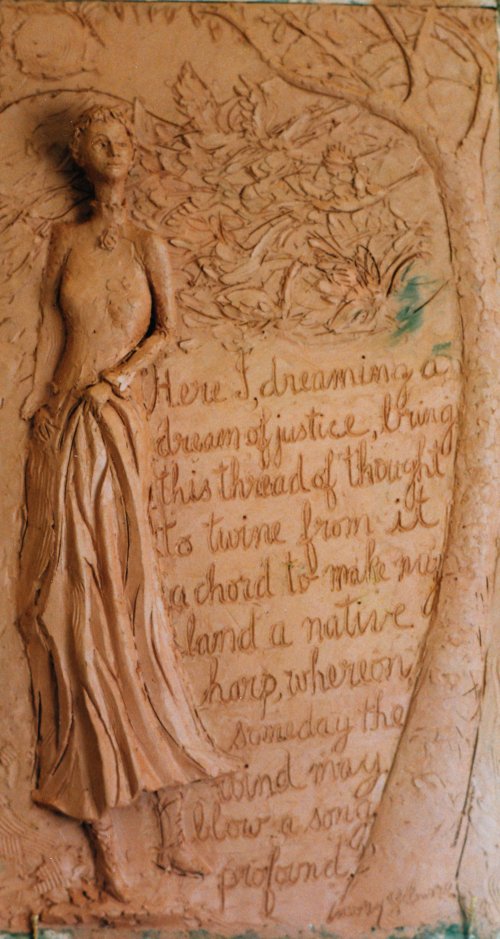 Here I, dreaming a
dream of justice, bring
this thread of thought
to twine from it
a chord to make my
land a native
harp, whereon,
someday the
wind may
blow a song
profound.